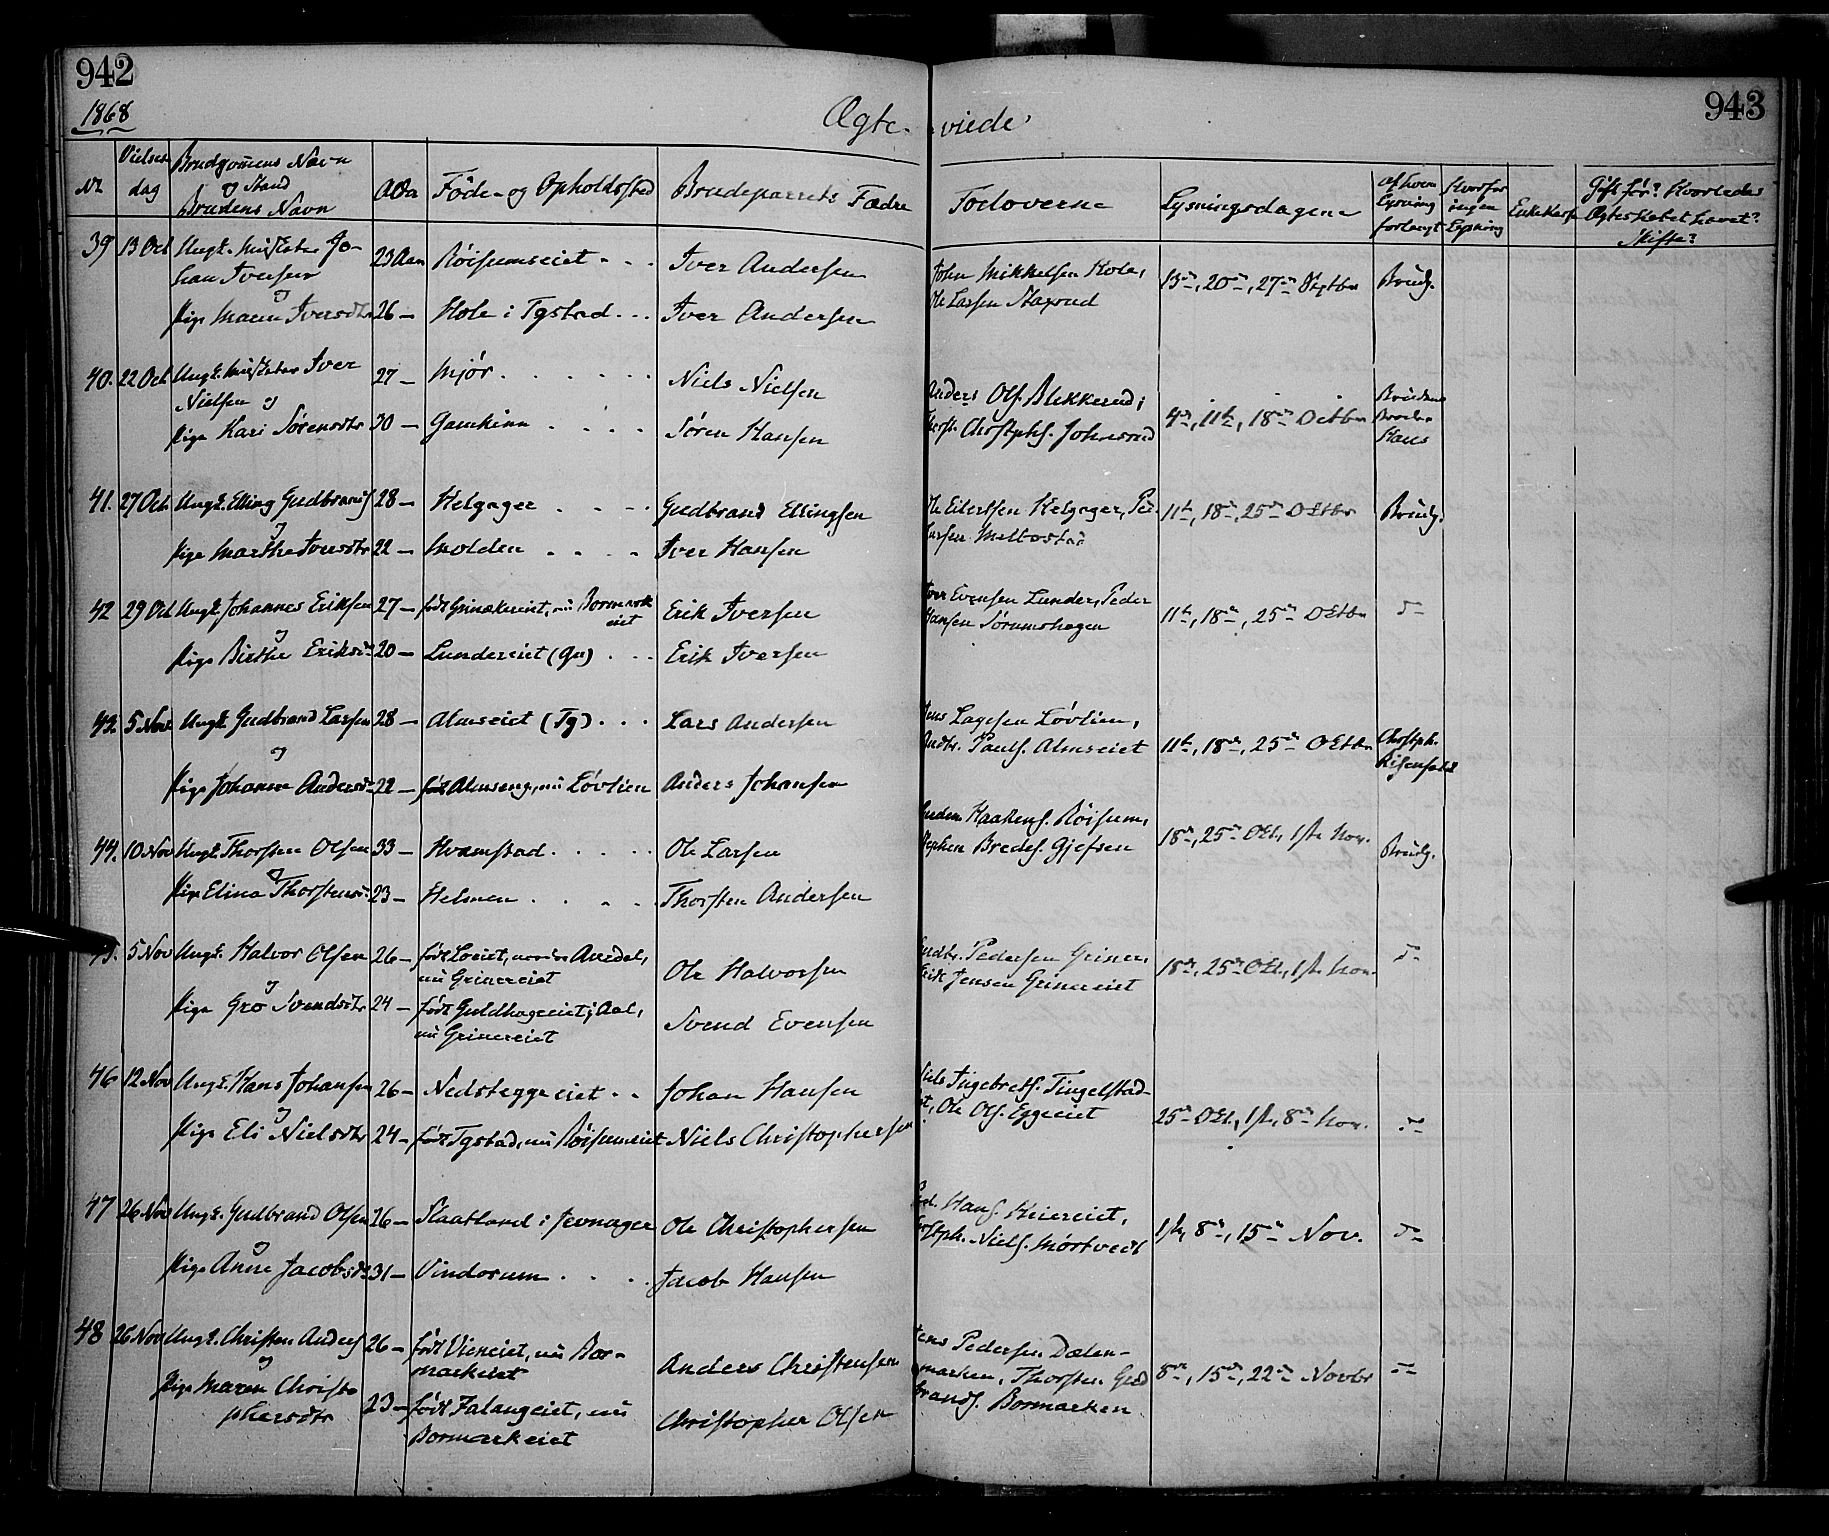 942
943
1868
Ægte- viede
Nr
Vielses dag
Brudgomens Navn og Stand Brudens Navn
Alder
Föde- og Opholdssted
Brudeparrets Fædre
Forloverne
Lysningsdagene
Af hvem Lysning forlangt
Hvorfor ingen Lysning
Enkekasse
Gift før? Hvorledes Ægteskabet hævet? Skifte?
39 13 Oct Ungk. Johan Iversen 23 Aar Röisumseiet Iver Andersen
John Mikkelsen Hole, Ole Larsen Stagrud 13de, 20de, 27de Septbr Brudg.
og
Pige Maren Iversdtr 26 - Hole i Tgstad Iver Andersen
40. 22 Oct Ungk. Iver Nielsen 27 - Mjör Niels Nielsen
Anders Ols. Blekkerud, Christophs. 4de, 11te, 18de Octbr Brudens Broder Hans
og
Pige Kari Sörensdtr 30 - Gamkinn Sören Hansen
41. 27 Oct Ungk. Elling Gudbrands 28 - Helgager Gudbrand Ellingsen
Ole Eilertsen Helgager, Ped. Larsen 11te, 18de, 25de Octbr Brudg.
og
Pige Marthe Iversdtr 22 - Molden Iver Hansen
42 29 Oct Ungk. Johannes Eriksen 27 - født Grinakereiet, nu Bormarkeiet Erik Iversen
Iver Evensen Lunder, Peder Hansen Sörumshagen 11te, 18de, 25de Octbr do
og
Pige Birthe Eriksdtr 20 - Lundereiet (Gr) Erik Iversen
43. 5 Nov Ungk. Gudbrand Larsen 28 - Almseiet (Tg) Lars Andersen
Jens Lagesen Lövlien, Gudbr. Pauls. Almseiet 11te, 18de, 25de Octbr Christph.
og
Pige Johanne Andersdtr 22 - født Almseng, nu Lövlien Anders Johansen
44. 10 Nov Ungk. Thorsten Olsen 33 - Hvamstad Ole Larsen
Haakens. Röisum, Stephen Bredes. Gjefsen 18de, 25de Oct., 1ste Nov. Brudg.
og
Pige Elina Thorstensdtr 23 - Helmen Thorsten Andersen
45. 5 Nov Ungk. Halvor Olsen 26 - født Loeiet, nordre Aurdal, nu Grinereiet Ole Halvorsen
Gudbr. Pedersen Griner, Erik Jensen Grinereiet 18de, 25de Oct., 1ste Nov. do
og
Pige Gro Svendsdtr 24 - født Guldhageeiet i Aal, nu Grinereiet Svend Evensen
46 12 Nov Ungk. Hans Johansen 26 - Nedreeggeeiet Johan Hansen
Niels Ingebrets. Tingelstadeiet, Ole Ols. Eggeeiet 25de Oct., 1ste, 8de Nov. do
og
Pige Eli Nielsdtr 24 - født Tgstad, nu Röisumeiet Niels Christophersen
47 26 Nov Ungk. Gudbrand Olsen 26 - Slaatland i Jevnager Ole Christophersen
Hans. Niels. Mörtvedt 1ste, 8de, 15de Nov. do
og
Pige Anne Jacobsdtr 31 - Vindorum Jacob Hansen
48 26 Nov Ungk. Christen Anders 26 - født Vieneiet, nu Bormarkeiet Anders Christensen
Jens Pedersen Dælenmarken, Thorsten Gudbrands. Bormarken 8de, 15de, 22de Novbr do
og
Pige Maren Christophersdtr 23 - født Falangeiet, nu Bormarkeiet Christopher Olsen